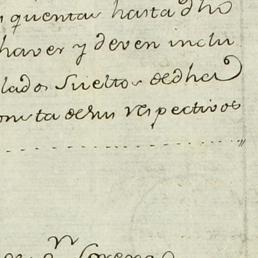 quenta hasta dho
haver y deven inclu
lados Sueltos de dha
onsta de sus respectivos
Lorenzo